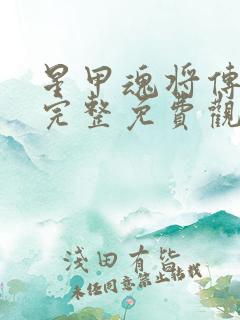 星甲魂将傳
完整免費觀
淺田有皆
未經同意禁止轉載